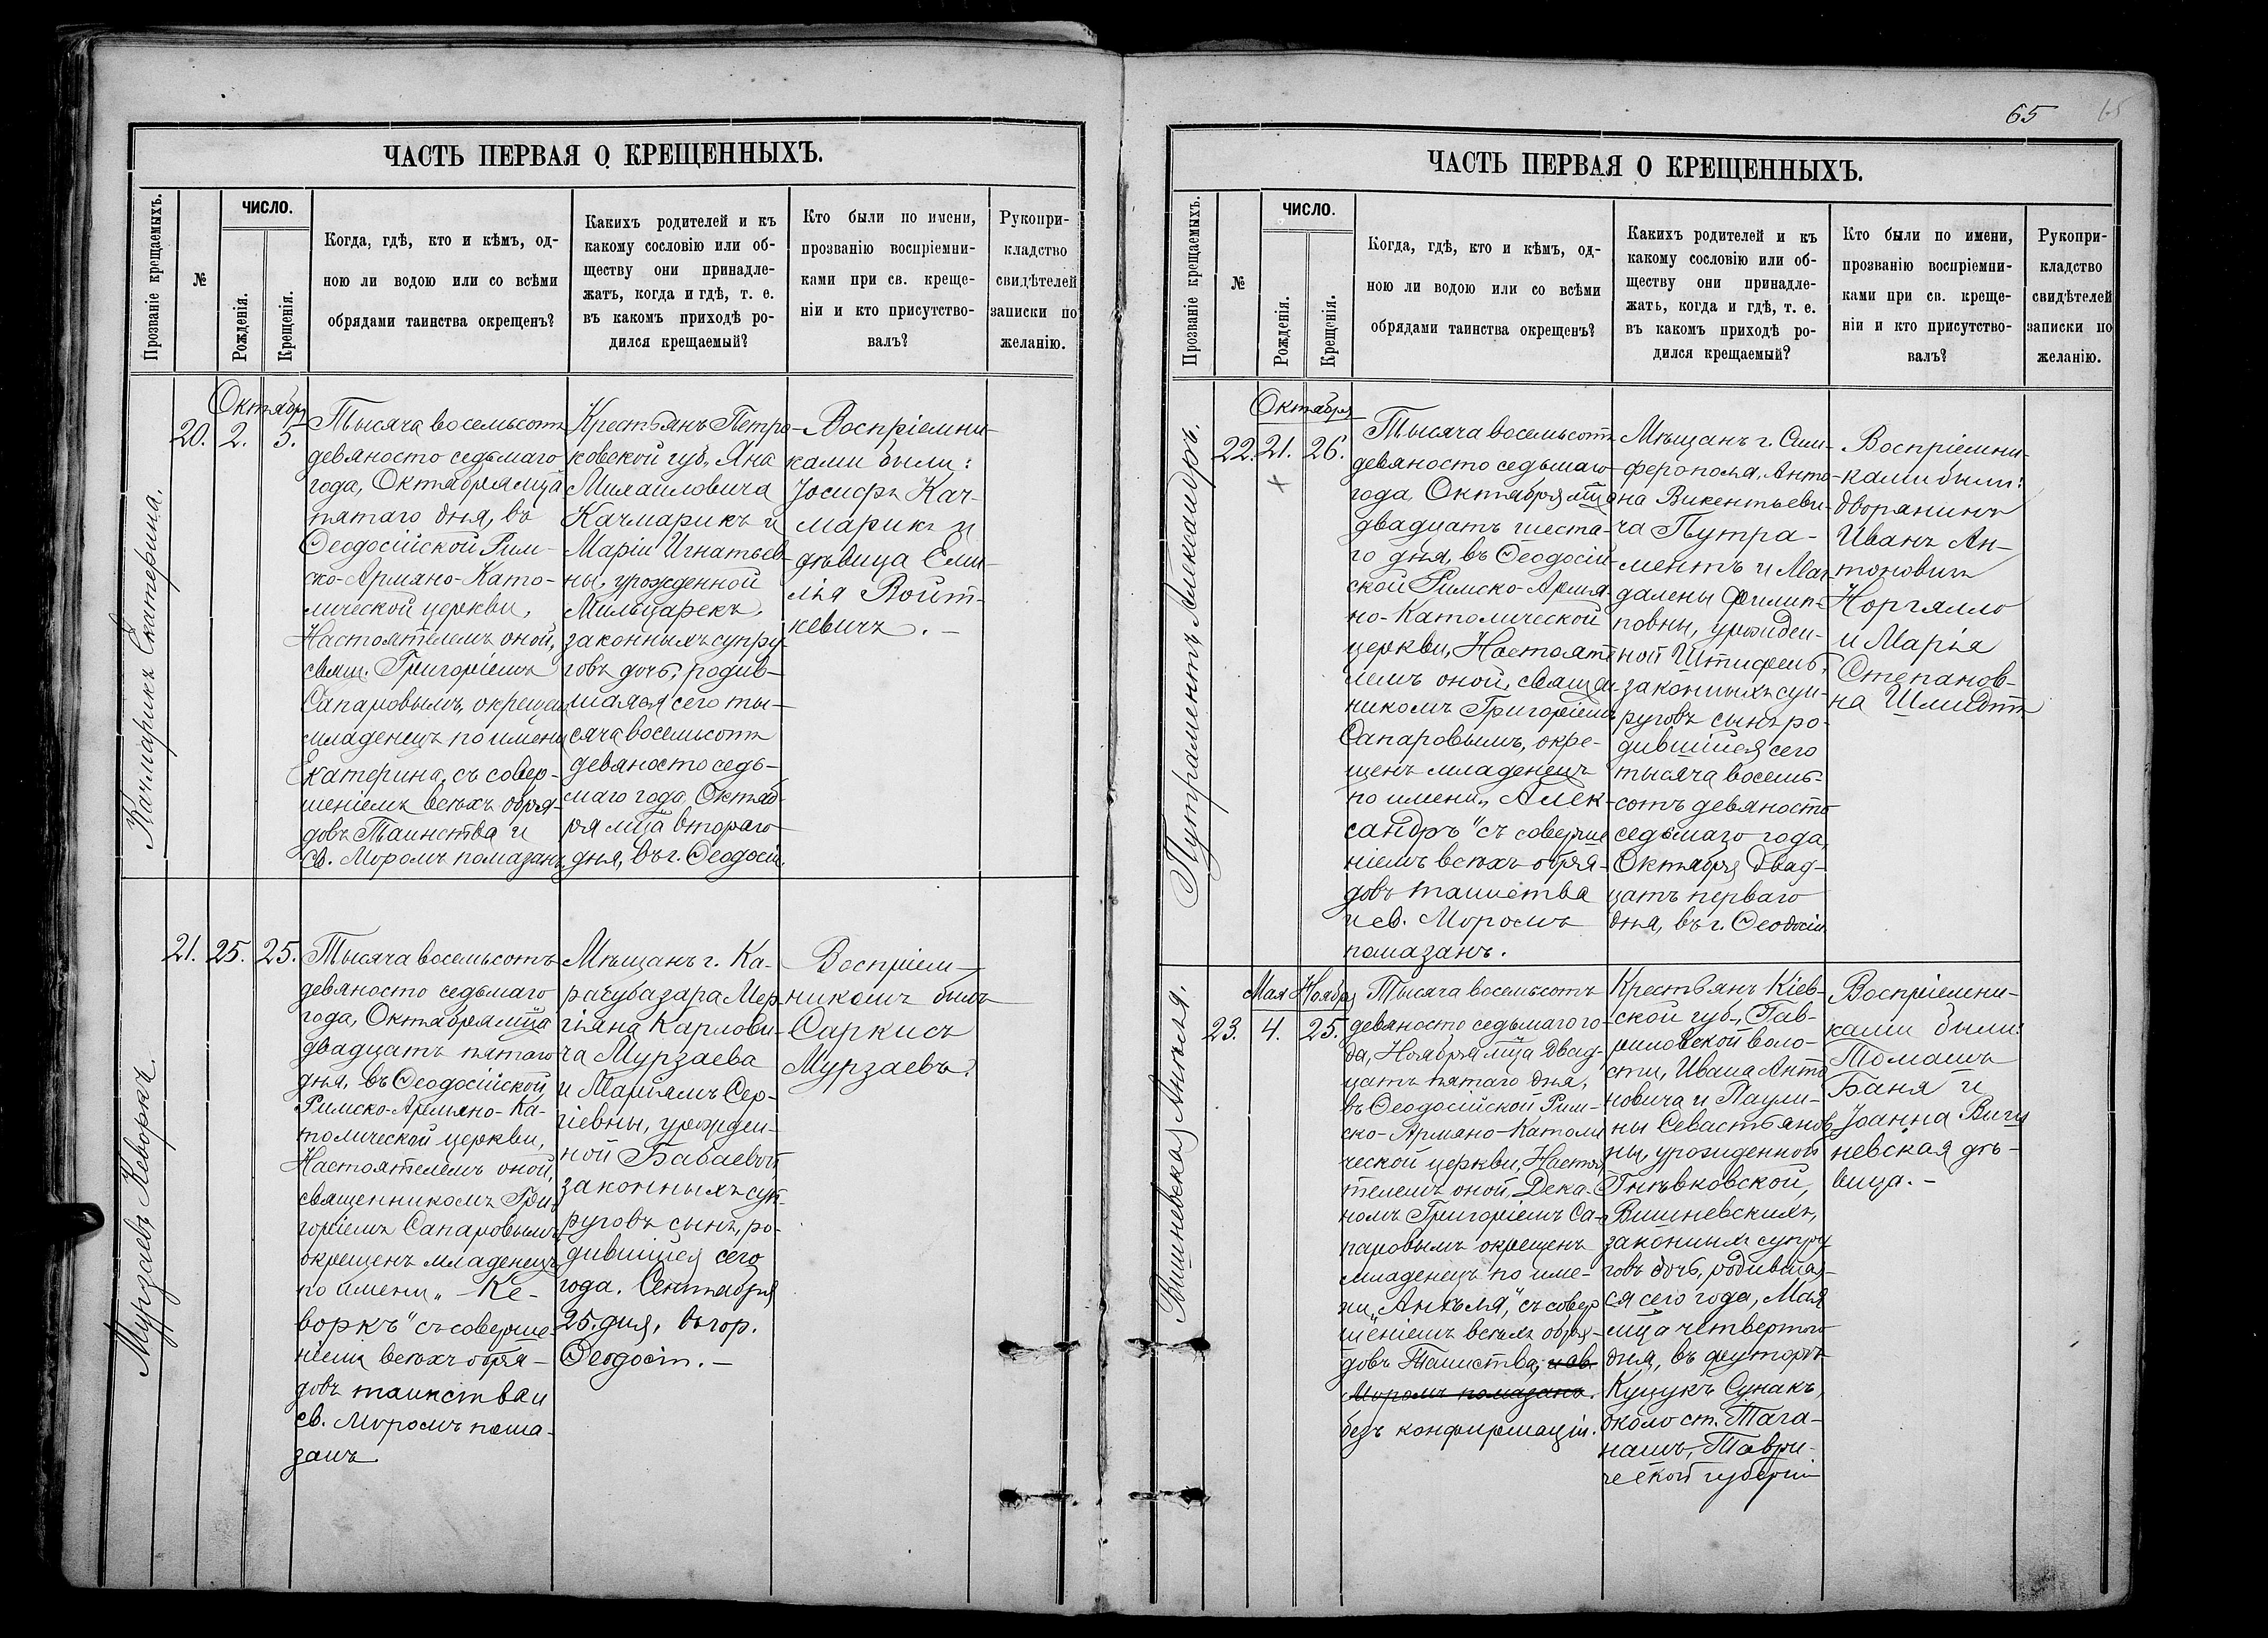 ЧАСТЬ ПЕРВАЯ О КРЕЩЕННЫХЪ.
Прозваніе крещаемыхъ.
№
ЧИСЛО.
Рожденія.
Крещенія.
Когда, гдѣ, кто и кѣмъ, од-
ною ли водою или со всѣми
обрядами таинства окрещенъ?
Какихъ родителей и къ
какому сословію или об-
ществу они принадле-
жатъ, когда и гдѣ, т. е.
въ какомъ приходѣ ро-
дился крещаемый?
Кто были по имени,
прозванію воспріемни-
ками при св. креще-
ніи и кто присутство-
валъ?
Рукопри-
кладство
свидѣтелей
записки по
желанію.
Качмарикъ Екатерина.
Октября
20. 2. 5.
Тысяча восемьсотъ
девяносто седьмаго
года, Октября мца
пятаго дня, въ
Ѳеодосійской Рим-
ско-Армяно-Като-
лической церкви,
Настоятелемъ оной,
свящ. Григоріемъ
Сапаровымъ, окрещенъ
младенецъ по имени
Екатерина, съ совер-
шеніемъ всѣхъ обря-
довъ Таинства и
св. Мѵромъ помазанъ
Крестьянъ Петро-
ковской губ., Яна
Михаиловича
Качмарикъ и
Маріи Игнатьев-
ны, урожденной
Мильцарекъ,
законныхъ супру-
говъ дочь, родив-
шаяся сего ты-
сяча восемьсотъ
девяносто седь-
маго года, Октяб-
ря мца втораго
дня, въ г. Ѳеодосіи.
Воспріемни-
ками были:
Іосифъ Кач-
марикъ и
дѣвица Еми-
лія Войт-
кевичъ. –
Мурзаевъ Кеворкъ.
21. 25. 25.
Тысяча восемьсотъ
девяносто седьмаго
года, Октября мца
двадцать пятаго
дня, въ Ѳеодосійской
Римско-Армяно-Ка-
толической церкви,
Настоятелемъ оной,
священникомъ Гри-
горіемъ Сапаровымъ,
окрещенъ младенецъ
по имени „Ке-
воркъ" съ соверше-
ніемъ всѣхъ обря-
довъ таинства и
св. Мѵромъ пома-
занъ
Мѣщанъ г. Ка-
расубазара Мер-
гіяна Карлови-
ча Мурзаева
и Маріямъ Сер-
гіевны, урожден-
ной Бабаевой
законныхъ суп-
руговъ сынъ, ро-
дившійся сего
года. Сентября
25. дня, въ гор.
Ѳеодосіи. –
Воспріем-
никомъ былъ
Саркисъ
Мурзаевъ.
65
65
ЧАСТЬ ПЕРВАЯ О КРЕЩЕННЫХЪ.
Прозваніе крещаемыхъ.
№
ЧИСЛО.
Рожденія.
Крещенія.
Когда, гдѣ, кто и кѣмъ, од-
ною ли водою или со всѣми
обрядами таинства окрещенъ?
Какихъ родителей и къ
какому сословію или об-
ществу они принадле-
жатъ, когда и гдѣ, т. е.
въ какомъ приходѣ ро-
дился крещаемый?
Кто были по имени,
прозванію воспріемни-
ками при св. креще-
ніи и кто присутство-
валъ?
Рукопри-
кладство
свидѣтелей
записки по
желанію.
Путраментъ Александръ.
Октября
22. 21. 26.
Тысяча восемьсотъ
девяносто седьмаго
года, Октября мца
двадцать шеста-
го дня, въ Ѳеодосій-
ской Римско-Армя-
но-Католической
церкви, Настояте-
лемъ оной, священ-
никомъ Григоріемъ
Сапаровымъ, окре-
щенъ младенецъ
по имени „Алек-
сандръ" съ соверше-
ніемъ всѣхъ обря-
довъ таинства
и св. Мѵромъ
помазанъ.
Мѣщанъ г. Сим-
ферополя, Анто-
на Викентьеви-
ча Путра-
ментъ и Маг-
далены Филип-
повны, урожден-
ной Штифель,
законныхъ суп-
руговъ сынъ ро-
дившійся сего
тысяча восемь-
сотъ девяносто
седьмаго года,
Октября двад-
цать перваго
дня, въ г. Ѳеодосіи
Воспріемни-
ками были:
дворянинъ
Иванъ Ан-
тоновичъ
Норгялло
и Марія
Степанов-
на Шмидтъ
Вишневская Анѣля.
Мая Ноября
23. 4. 25.
Тысяча восемьсотъ
девяносто седьмаго го-
да, Ноября мца двад-
цать пятаго дня,
въ Ѳеодосійской Рим-
ско-Армяно-Католи-
ческой церкви, Настоя-
телемъ оной, Дека-
номъ Григоріемъ Са-
паровымъ окрещенъ
младенецъ по име-
ни „Анѣля", съ совер-
шеніемъ всѣхъ обря-
довъ Таинства, и св.
Мѵромъ помазанъ.
безъ конфирмаціи.
Крестьянъ Кіев-
ской губ., Гав-
риловской воло-
сти, Ивана Анто-
новича и Паули-
ны Севастьянов-
ны, урожденной
Гнѣвковской,
Вишневскихъ,
законныхъ супру-
говъ дочь, родившая-
ся сего года, Мая
мца четвертаго
дня, въ хуторѣ
Куцукъ Сунакъ,
около ст. Тага-
нашъ, Таври-
ческой губерніи
Воспріемни-
ками были:
Томашъ
Баня и
Іоанна Виш-
невская дѣ-
вица. –